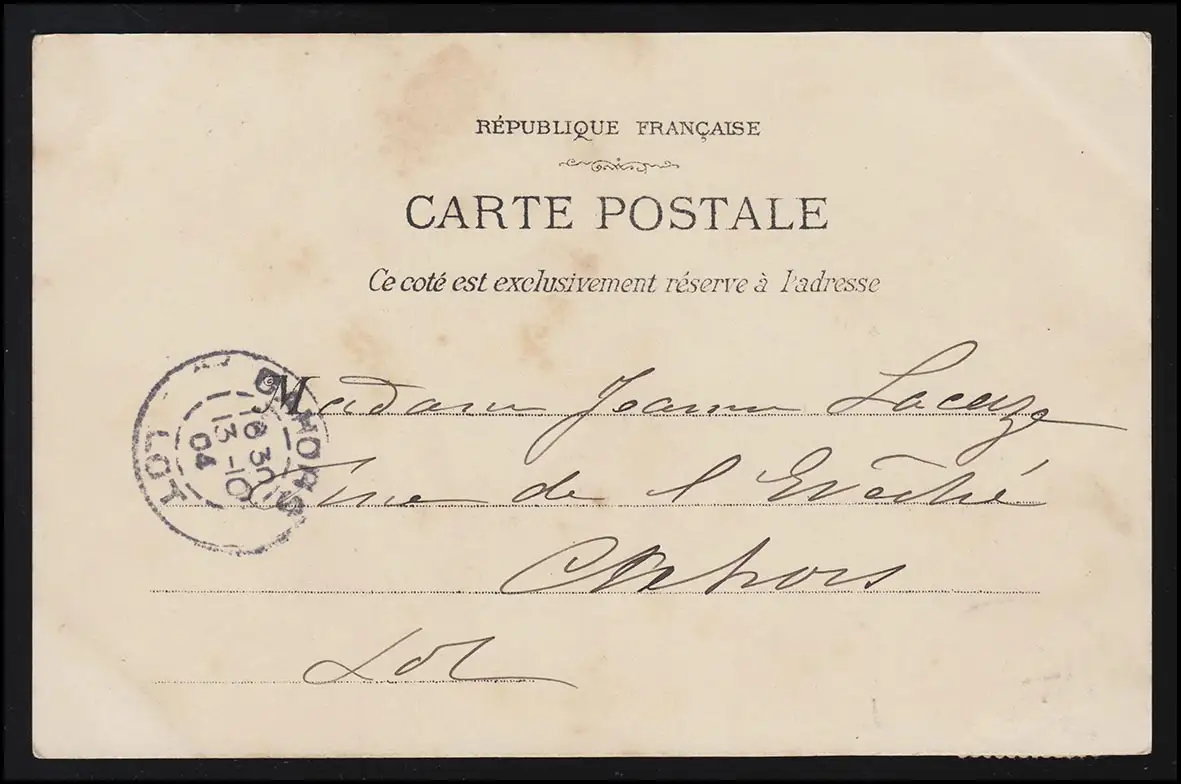 RÉPUBLIQUE FRANÇAISE
CARTE POSTALE
Ce coté est exclusivement réserve à l'adresse
Madame Jeanne Lacaze
rue de l Evêché
Cahors
Lot
CAHORS
18 30
13 -10
04
LOT